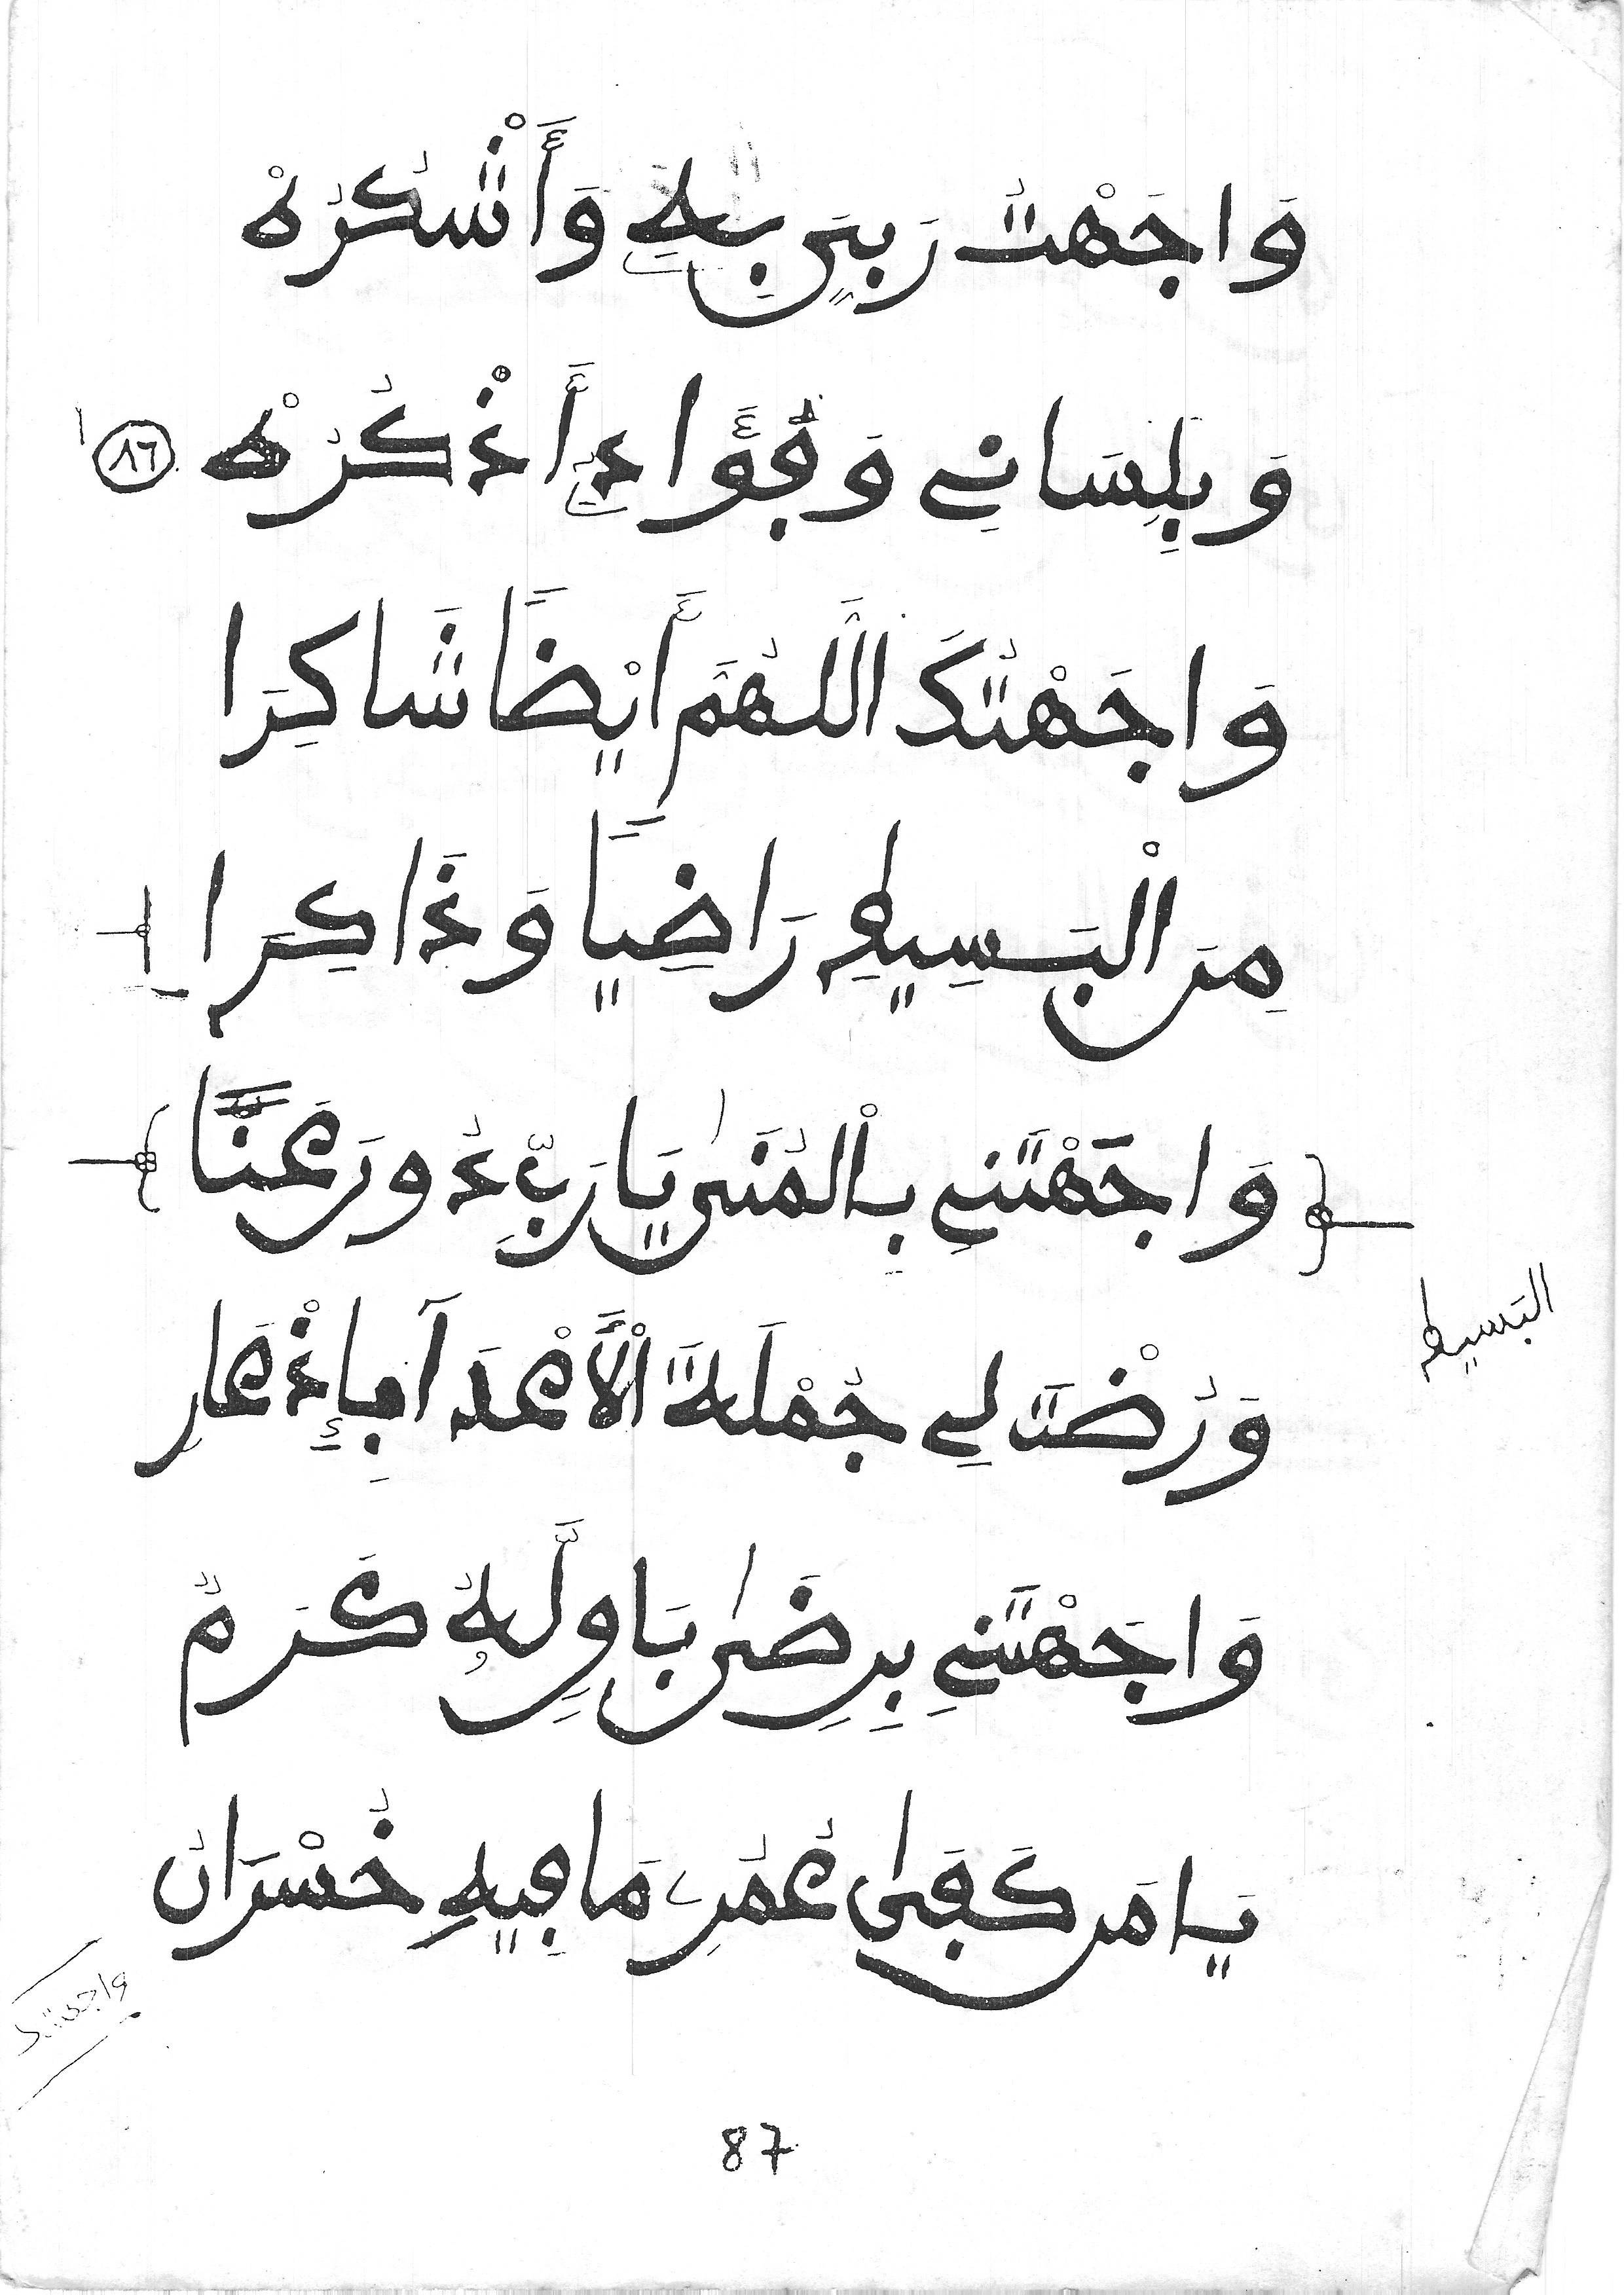 وَاجَهْتُ رَبِّيَ بِهِ وَأَشْكُرُهْ
وَبِلِسَانِي وَفُؤَادِ أَذْكُرُهْ ٨٦
وَاجَهْتُكَ اللَّهُمَّ أَيْضًا شَاكِرَا
مِنَ الْبَسِيطِ رَاضِيًا وَذَاكِرَا
وَاجَهْتَنِي بِالْمُنَىٰ يَا رَبِّ دُورَ عَنَّا
البَسِيط
وَرُضْتَ لِي جُمْلَةَ الْأَعْدَا بِإِذْعَارِ
وَاجَهْتَنِي بِرِضَىٰ بَاوٍ لَّهُ كَرَمٌ
يَا مَن كَفَىٰ عُمُرِي مَا فِيهِ خُسْرَانُ
واجهتك
87